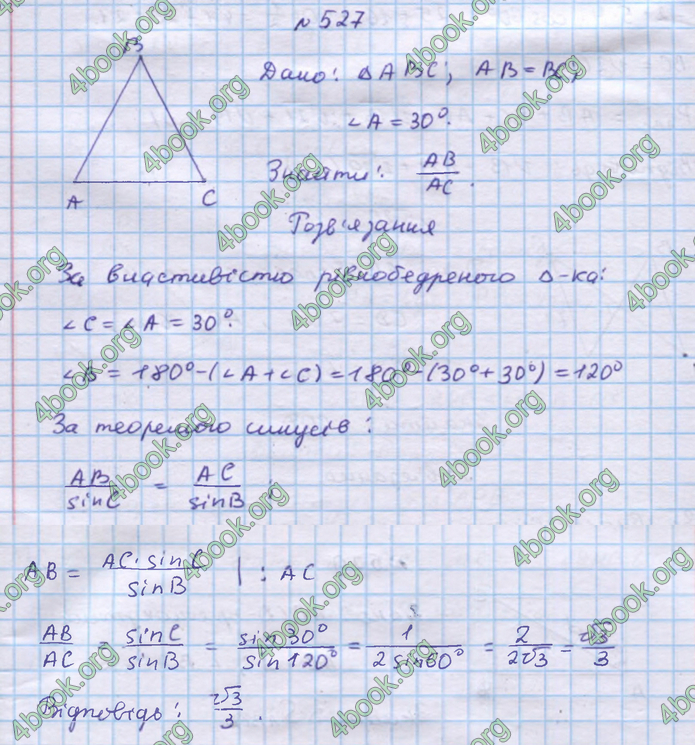 № 527
B
A
C
Дано: △ABC; AB = BC;
∠A = 30°.
Знайти: AB/AC.
Розв'язання
За властивістю рівнобедреного △-ка:
∠C = ∠A = 30°.
∠B = 180° - (∠A + ∠C) = 180° - (30° + 30°) = 120°
За теоремою синусів:
AB/sinC = AC/sinB.
AB = AC · sinC/sinB | : AC
AB/AC = sinC/sinB = sin30°/sin120° = 1/2sin60° = 2/2√3 = √3/3
Відповідь: √3/3.
4book.org